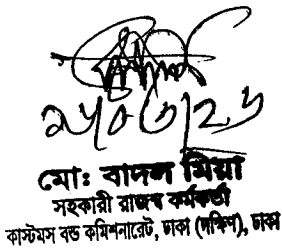 মোঃ বাদল মিয়া
সহকারী রাজস্ব কর্মকর্তা
কাস্টমস বন্ড কমিশনারেট, ঢাকা (দক্ষিণ), ঢাকা